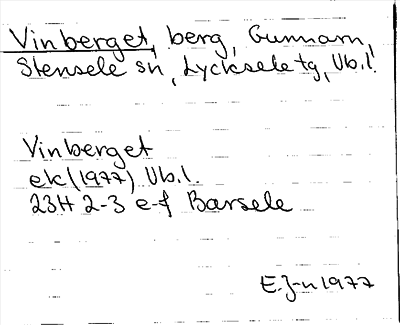 Vinberget, berg, Gunnarn,
Stensele sn, Lycksele tg, Vb.l.
Vinberget
ek (1977) Vb.l.
23H 2-3 e-f Barsele
E.J-n 1977